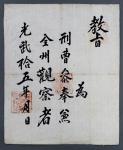 教旨
爲
刑曹叅奉兼
全州觀察者
光武拾五年 月 日